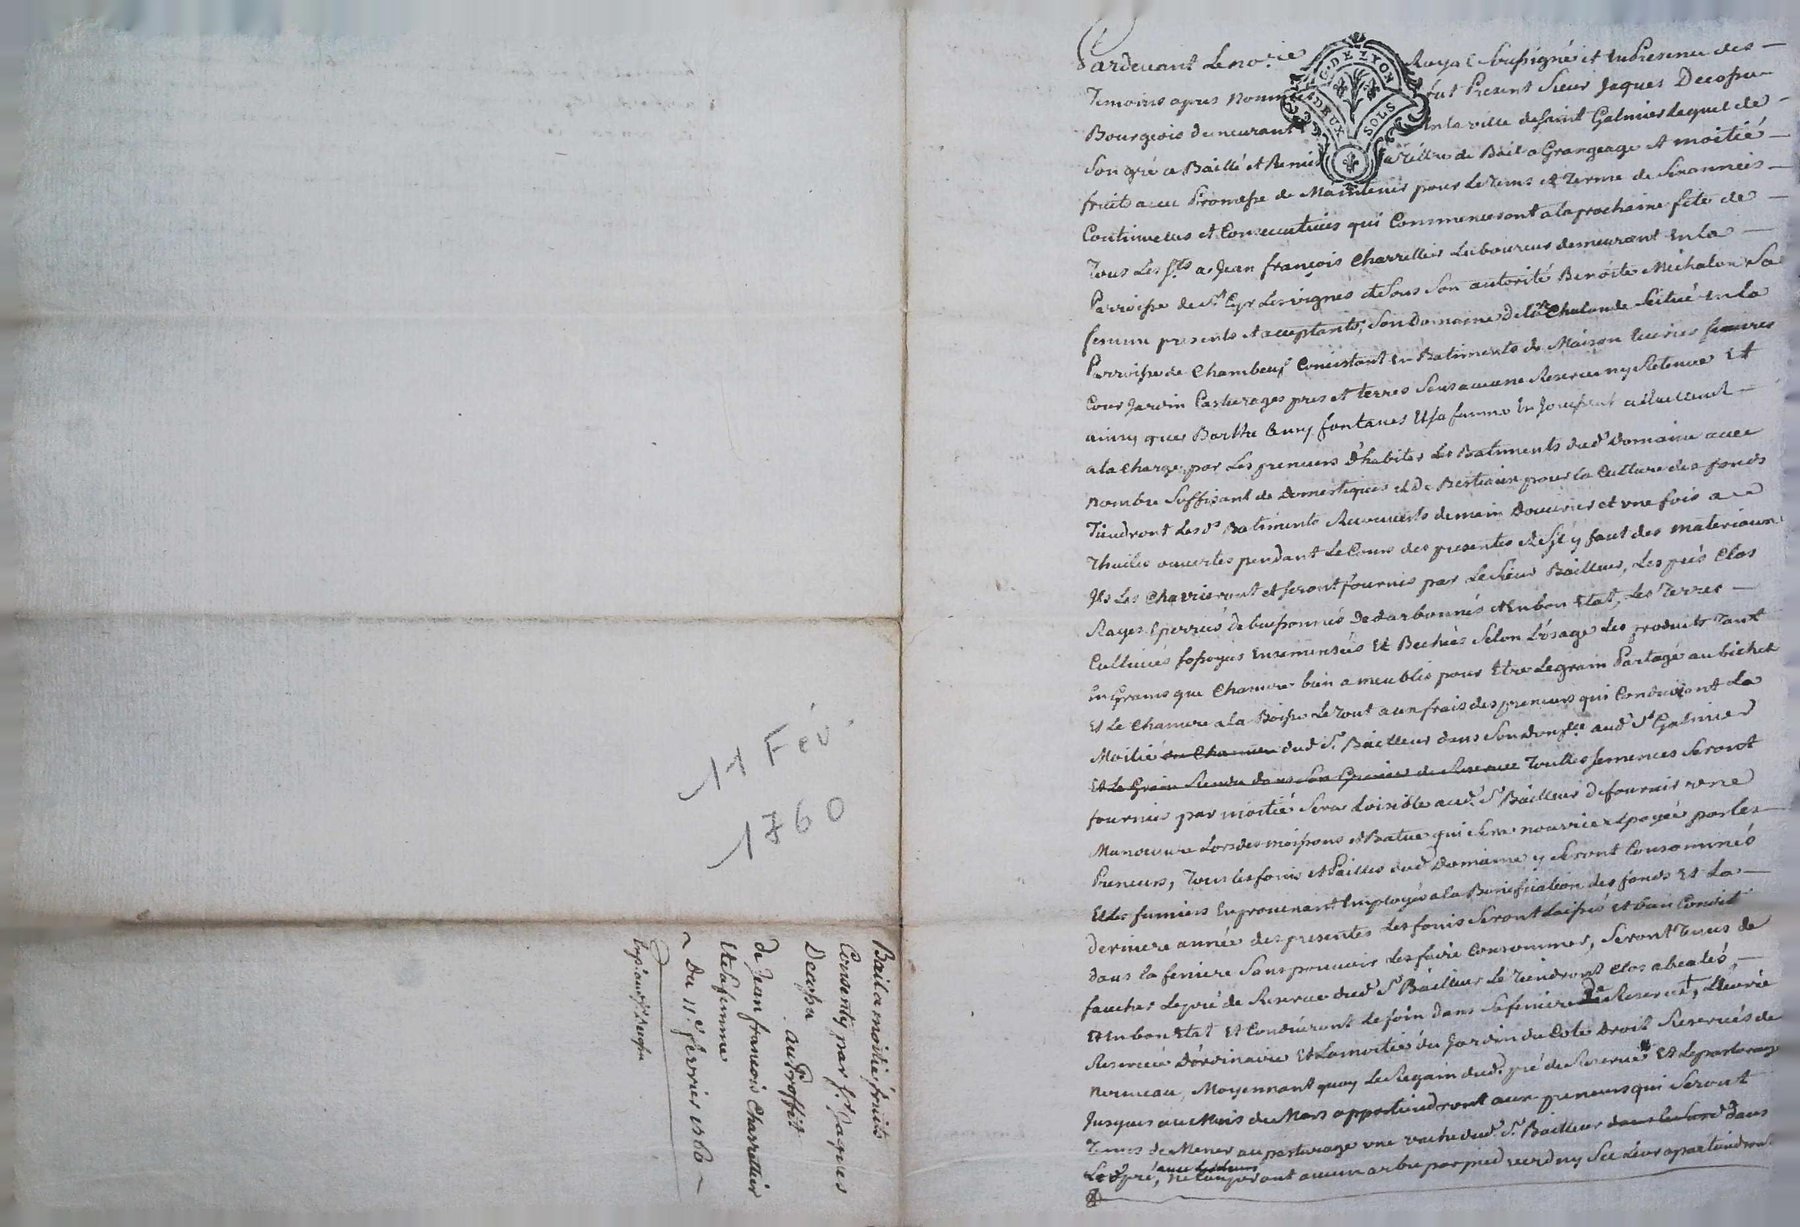 11 Fév.
1760
Bail a moitié fruits
Consenty par Sr Jaques
Decosse
au Proffit
de Jean francois Charrellier
et sa femme
~ Du 11e fevrier 1760 ~
G. DE LYON
DEUX SOLS
Pardevant Le no.re Royal soussigné et en Presence des
Temoins apres nommés fut Present Sieur Jaques Decosse
Bourgeois demeurant en la ville de saint Galmier Lequel de
Son gré a Baillé et Remis a tiltre de Bail a Grangeage et moitié
fruits avec Promesse de Maintenir pour Le tems et Terme de Six années
Continuelles et Consecutives qui Commenceront a la prochaine fête de
Tous Les Sts a Jean françois Charrellier Laboureur demeurant en la
Parroisse de St Cyr Les vignes et de Sous Son autorité Benoite Michalon Sa
femme presents et acceptants, Son Domaine de la Chalande Scitué en la
Parroisse de Chambeuf Consistant en Batiments de Maison Ecuries fenieres
Cour Jardin Pasturages pres et terres Sans aucune Reserve ny Retenue Et
ainsy que Barthelemy fontanes et sa femme en jouissent actuellement
a la Charge par Les preneurs d'habiter Les Batiments dud. Domaine avec
nombre Suffisant de Domestiques et de Bestiaux pour la Culture des fonds
Tiendront Les d. Batiments Recouverts de main d'ouvrier et une fois a
Thuiles ouvertes pendant Le Cours des presentes et S'il y faut des materiaux
Ils Les Charrieront et Seront fournis par Le Sieur Bailleur, Les prés Clos
Rayes Epierrés de buissonnés Dedarbonnés et en bon Etat, Les Terres
Cultivées fossoyées Ensemensées Et Bechées Selon L'usage Les produits Tant
En Grains que Chanvre bien ameublis pour Etre Le grain Partagé au bichet
Et Le Chanvre a la Boisse Le Tout aux frais des preneurs qui Conduiront La
Moitié du Chanvre dud. Sr. Bailleur dans Son dom.ce aud. St Galmier
Et Le Grain Rendu dans Son Grenier de Reserve Touttes Semences Seront
fournies par moitié Sera Loisible aud. Sr Bailleur de fournir une
Manoeuvre Lors des moissons et Batue qui Sera nourrie et payée par les
Preneurs, Tous les foins et Pailles dud. Domaine y Seront Consommés
Et Les fumiers En provenant Employés a la Bonification des fonds Et La
derniere année des presentes Les foins Seront Laissés et bien Condit
dans la feniere Sans pouvoir Les faire Consommer, Seront Tenus de
faucher Le pré de Reserve dud. Sr Bailleur Le Tiendront Clos
Et en bon Etat Et Conduiront Le foin dans Sa feniere de Reserve, L'Ecurie
Reservée d'ordinaire Et La moitié du Jardin du Coté Droit Reservés de
nouveau, Moyennant quoy Le Regain dud. pré de Reserve Et Le pasturage
Jusques au Mois de Mars appartiendront aux preneurs qui Seront
Tenus de Mener au pasturage une vache dud. Sr Bailleur dans
Led. pré, ne Couperont aucun arbre par pied verd ny Sec Leur apartiendront